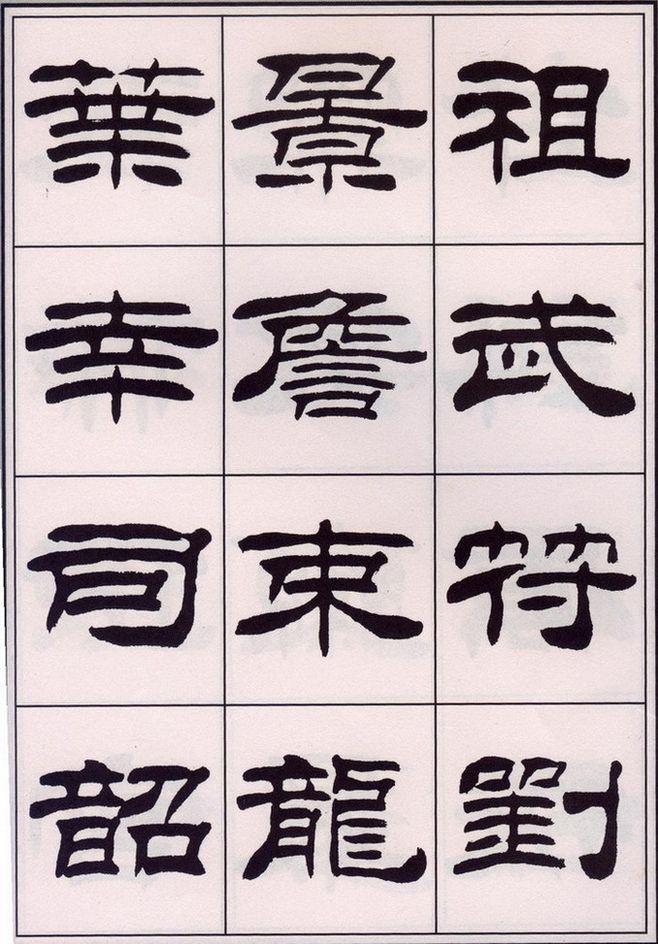 祖武符劉
景詹束龍
葉幸司韶